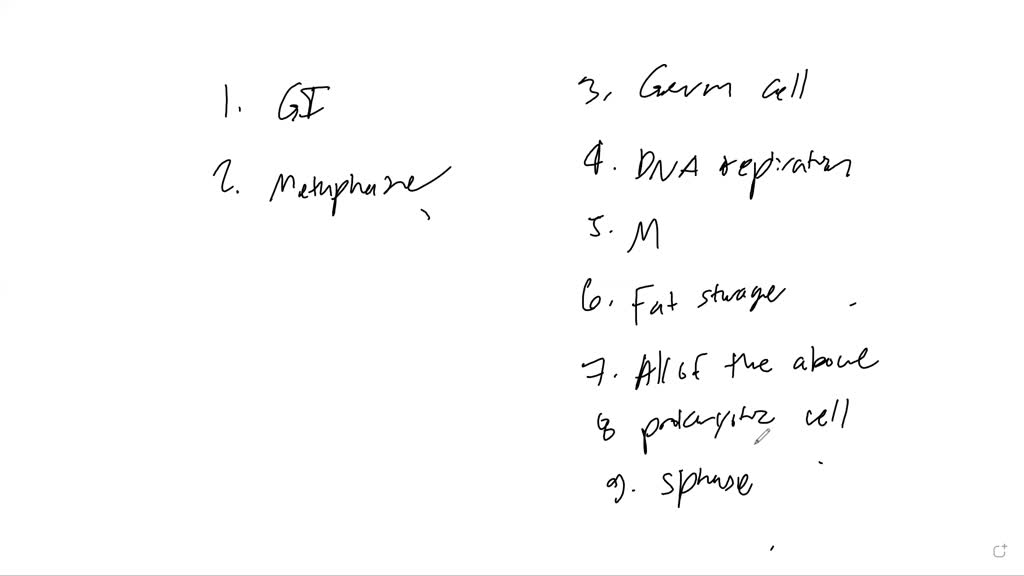 1. GI
2. Metaphase
3. Germ cell
4. DNA repliration
5. M
6. Fat storage
7. All of the above
8 prokaryotic cell
9. S phase